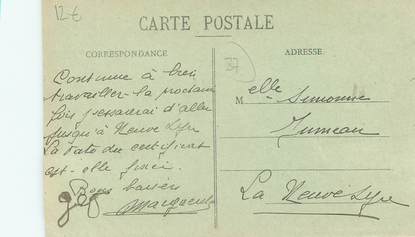 12€
CARTE POSTALE
CORRESPONDANCE
ADRESSE
37
Continue à bien
travailler la prochaine
fois j'essaierai d'aller
jusqu'à Neuve Lyre
La date du certificat
est-elle fixée.
Bons baisers
Marguerite
Melle Simonne
Jumeau
La Neuve Lyre